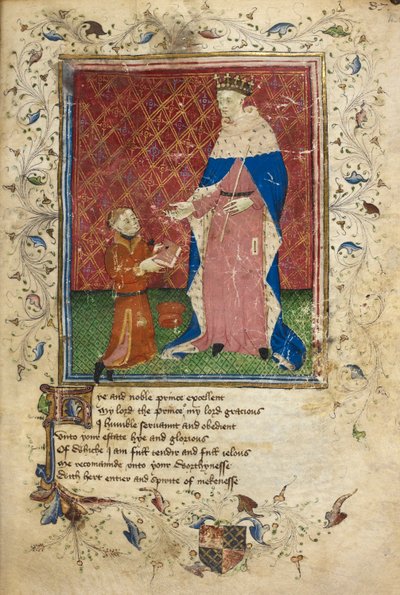 Hye and noble prince excellent
My lord the prince my lord gracious
I humble servaunt and obedient
Unto your estate hye and glorious
Of Whiche I am full tendir and full ielous
Me recomaunde unto your Worthynesse
With hert entier and spirite of mekenesse